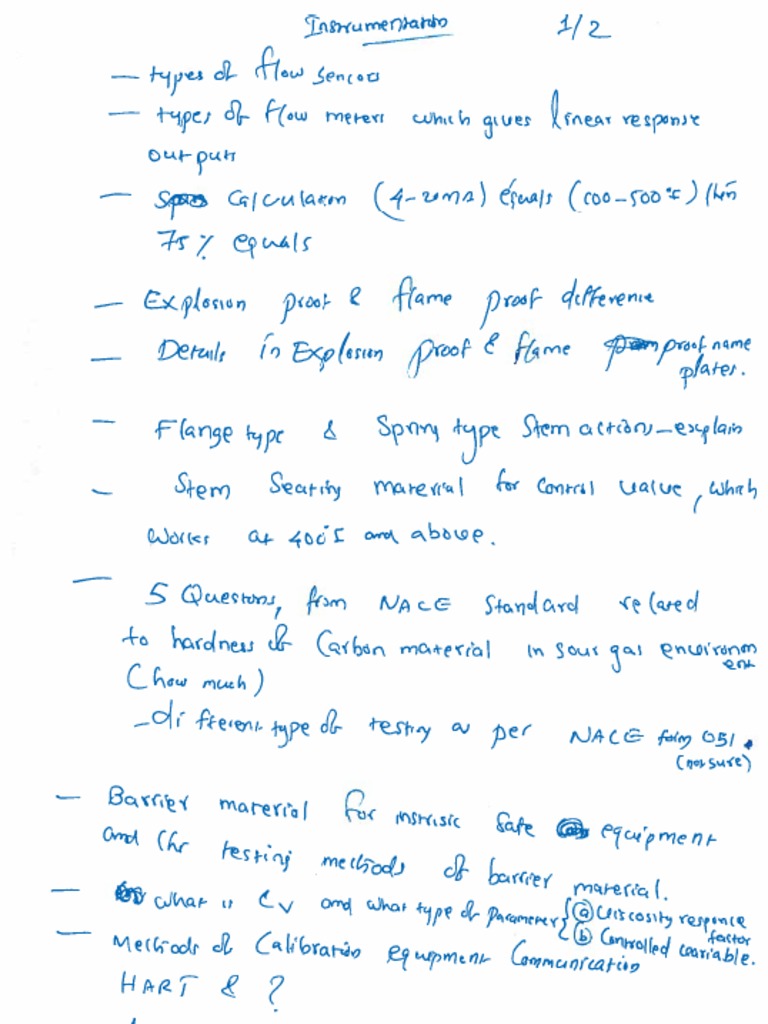 Instrumentation 1/2
— types of flow sensors
— types of flow meters which gives linear response
outputs
— Calculation (4-20mA) equals (100-500°F) then
75% equals
— Explosion proof & flame proof difference
— Details in Explosion proof & flame proof name
plates.
— Flange type & Spring type Stem actions - explain
— Stem Seating material for control valve, which
works at 400°F and above.
— 5 Questions, from NACE Standard related
to hardness of Carbon material in sour gas environm
ent
(how much)
- different type of testing as per NACE 051.
(not sure)
— Barrier material for instrisic safe equipment
and the testing methods of barrier material.
— what is CV and what type of parameter { (a) Viscosity response
factor
(b) Controlled variable.
— Methods of Calibration equipment Communication
HART & ?